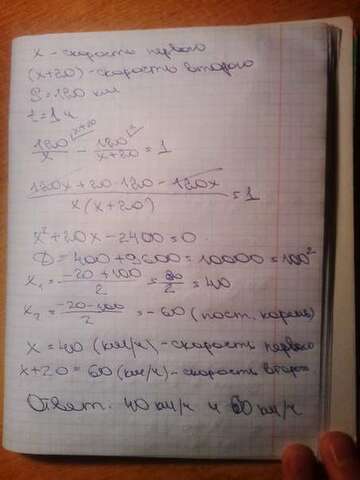 x - скорость первого
(x+20) - скорость второго
S = 120 км
t = 1 ч
120/x \x+20 - 120/x+20 \x = 1
120x + 20·120 - 120x / x(x+20) = 1
x² + 20x - 2400 = 0
D = 400 + 9600 = 10000 = 100²
x₁ = -20+100/2 = 80/2 = 40
x₂ = -20-100/2 = -60 (пост. корень)
x = 40 (км/ч) - скорость первого
x+20 = 60 (км/ч) - скорость второг
Ответ. 40 км/ч и 60 км/ч